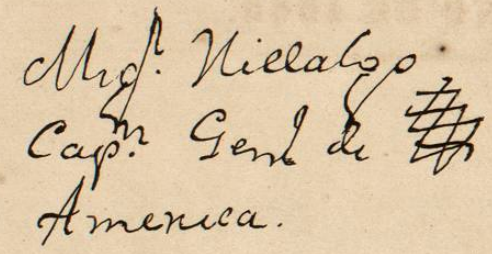 Migl. Hidalgo
Capn. Genl de
America.